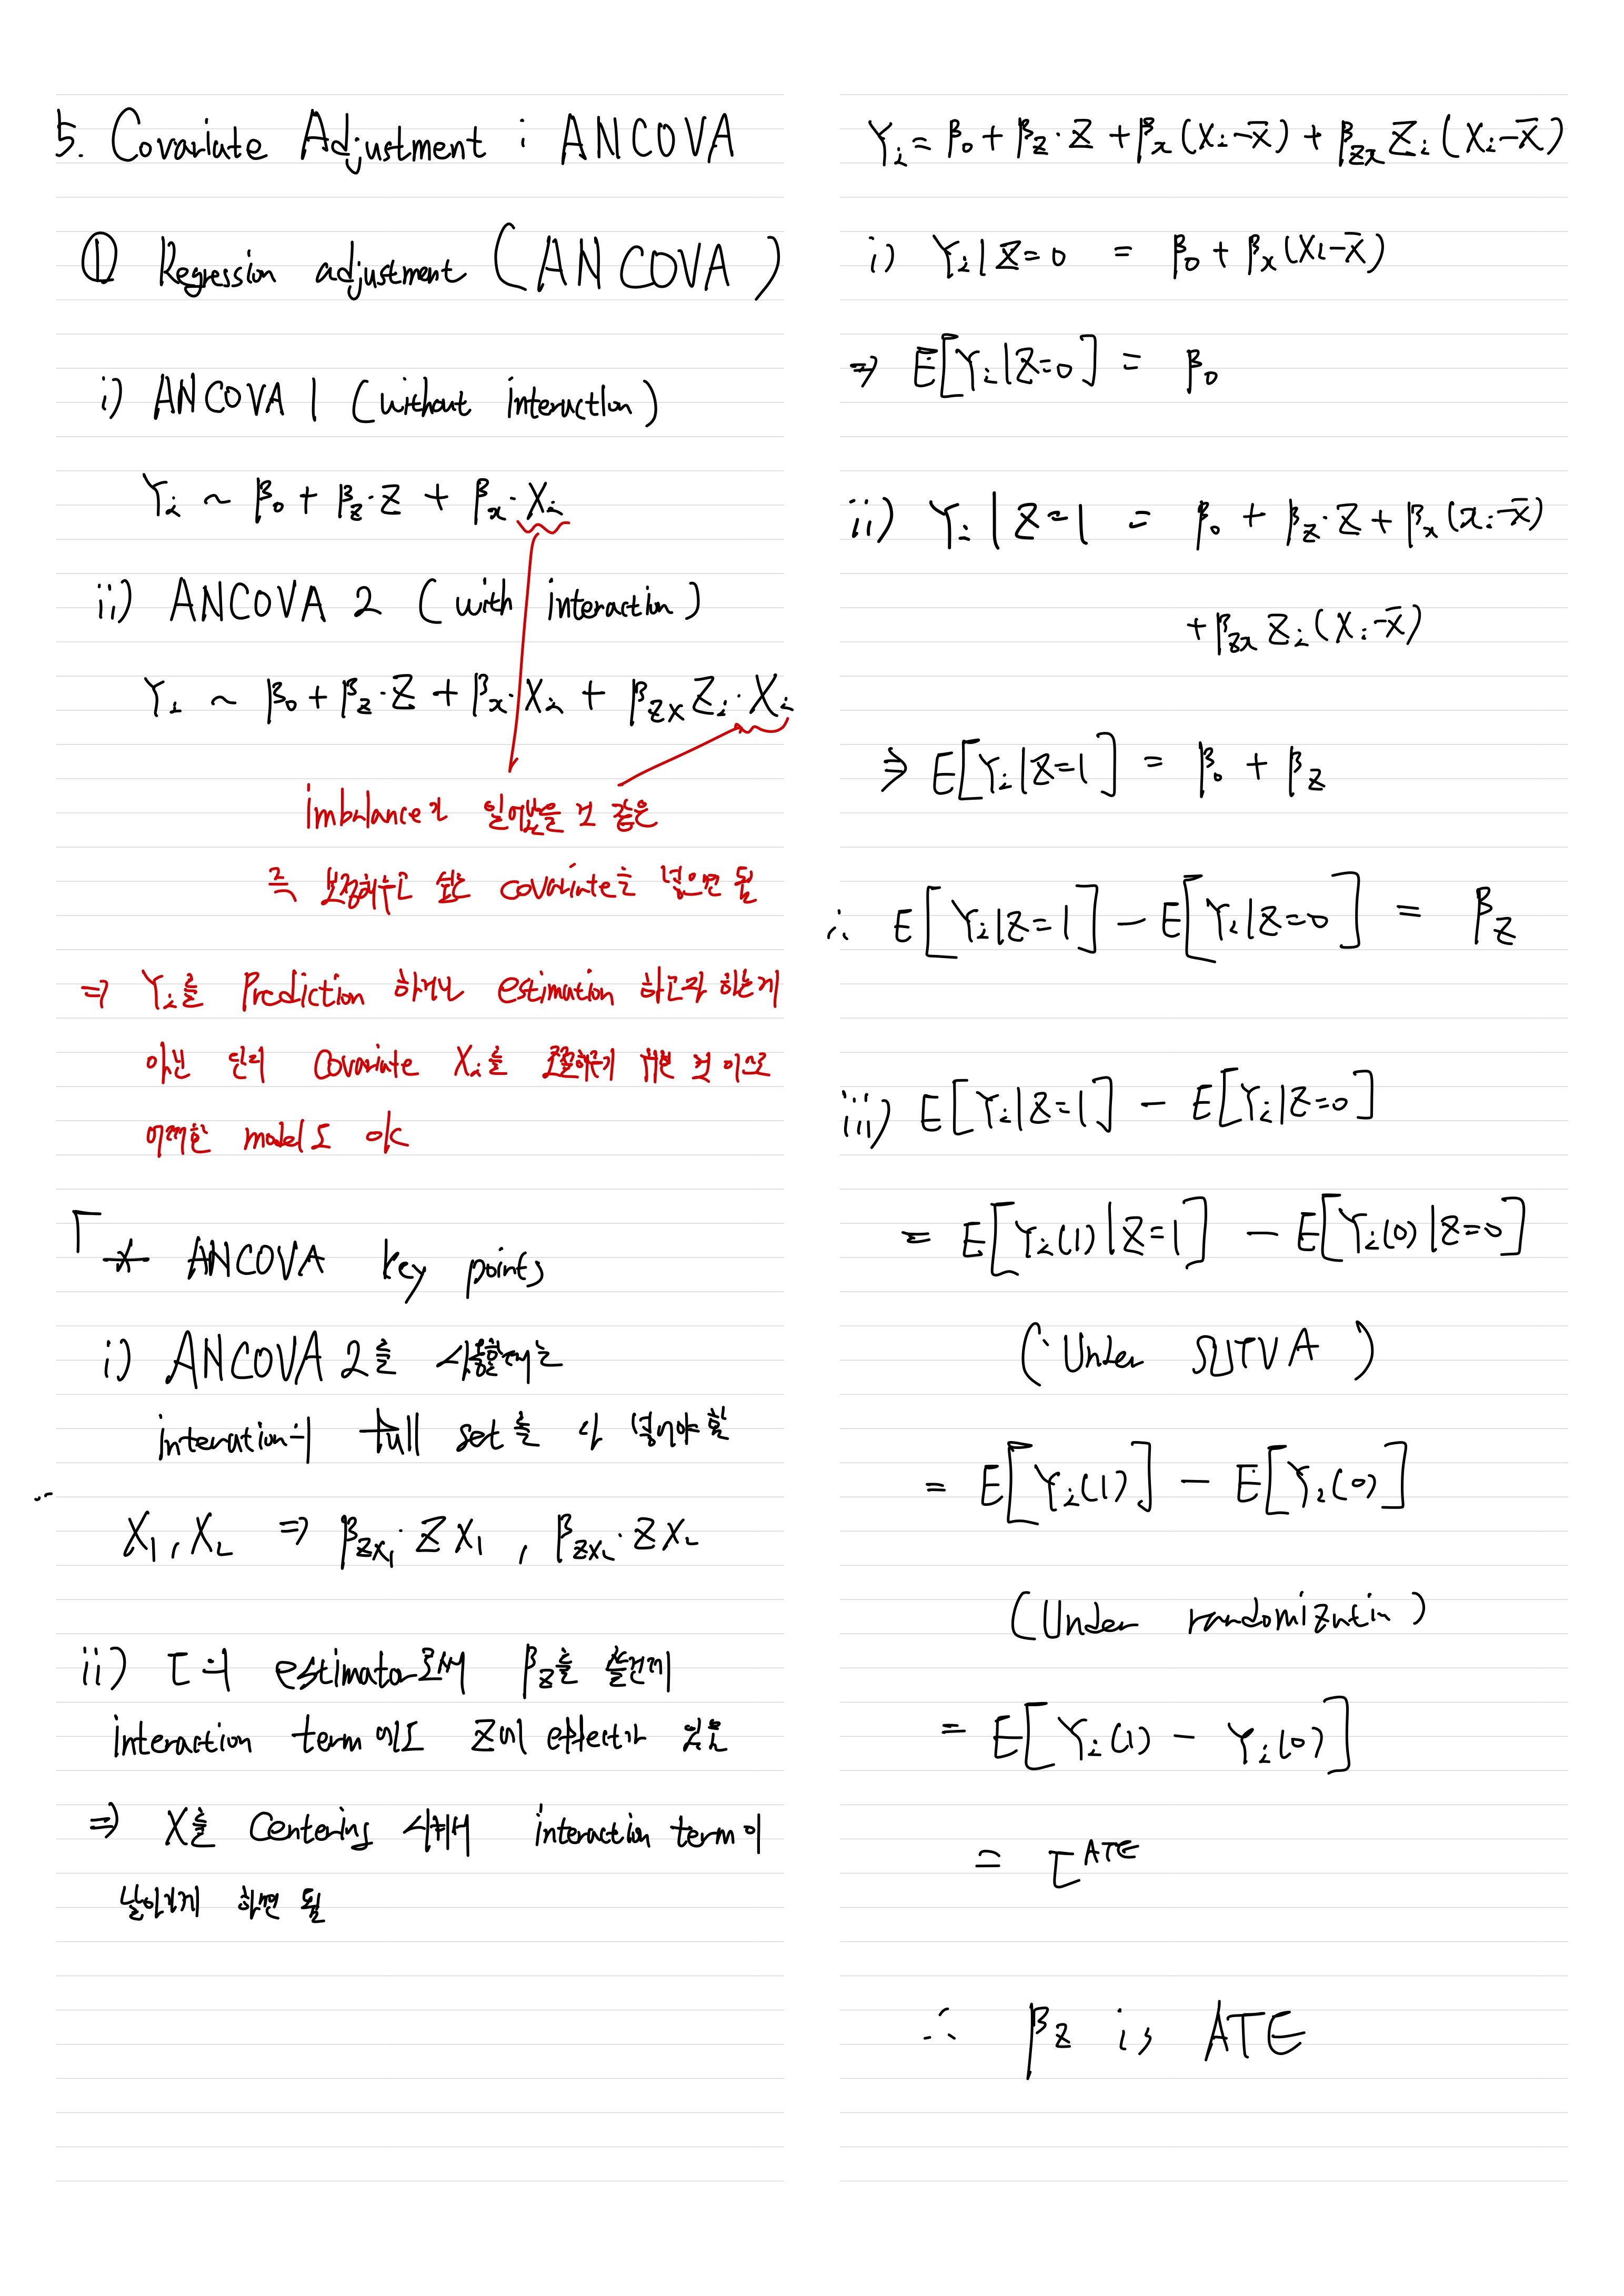 5. Covariate Adjustment : ANCOVA
① Regression adjustment (ANCOVA)
i) ANCOVA 1 (without interaction)
Yᵢ ~ β₀ + β_z·Z + βₓ·Xᵢ
ii) ANCOVA 2 (with interaction)
Yᵢ ~ β₀ + β_z·Z + βₓ·Xᵢ + β_zx Zᵢ·Xᵢ
imbalance가 일어났을 것 같은
즉 보정해주고 싶은 covariate를 넣으면 됨
⇒ Yᵢ를 Prediction 하거나 estimation 하고자 하는게
아닌 단지 Covariate Xᵢ를 조절해주기 위한 것 이므로
어떠한 model도 ok
* ANCOVA key points
i) ANCOVA 2를 사용할때는
interation의 full set를 다 넣어야함
X₁, X₂ ⇒ β_zx₁·ZX₁ , β_zx₂·ZX₂
ii) τ의 estimator로써 β_z를 쓸건데
interaction term에도 Z의 effect가 있음
⇒ X를 Centering 시켜서 interaction term이
날아가게 하면 됨
Yᵢ = β₀ + β_z·Z + βₓ(Xᵢ-x̄) + β_zx Zᵢ(Xᵢ-x̄)
i) Yᵢ|Z=0 = β₀ + βₓ(Xᵢ-x̄)
⇒ E[Yᵢ|Z=0] = β₀
ii) Yᵢ|Z=1 = β₀ + β_z·Z + βₓ(xᵢ-x̄)
+ β_zx Zᵢ(Xᵢ-x̄)
⇒ E[Yᵢ|Z=1] = β₀ + β_z
∴ E[Yᵢ|Z=1] - E[Yᵢ|Z=0] = β_z
iii) E[Yᵢ|Z=1] - E[Yᵢ|Z=0]
= E[Yᵢ(1)|Z=1] - E[Yᵢ(0)|Z=0]
(∵ Under SUTVA)
= E[Yᵢ(1)] - E[Yᵢ(0)]
(Under randomization)
= E[Yᵢ(1) - Yᵢ(0)]
= τ^ATE
∴ β_z is ATE